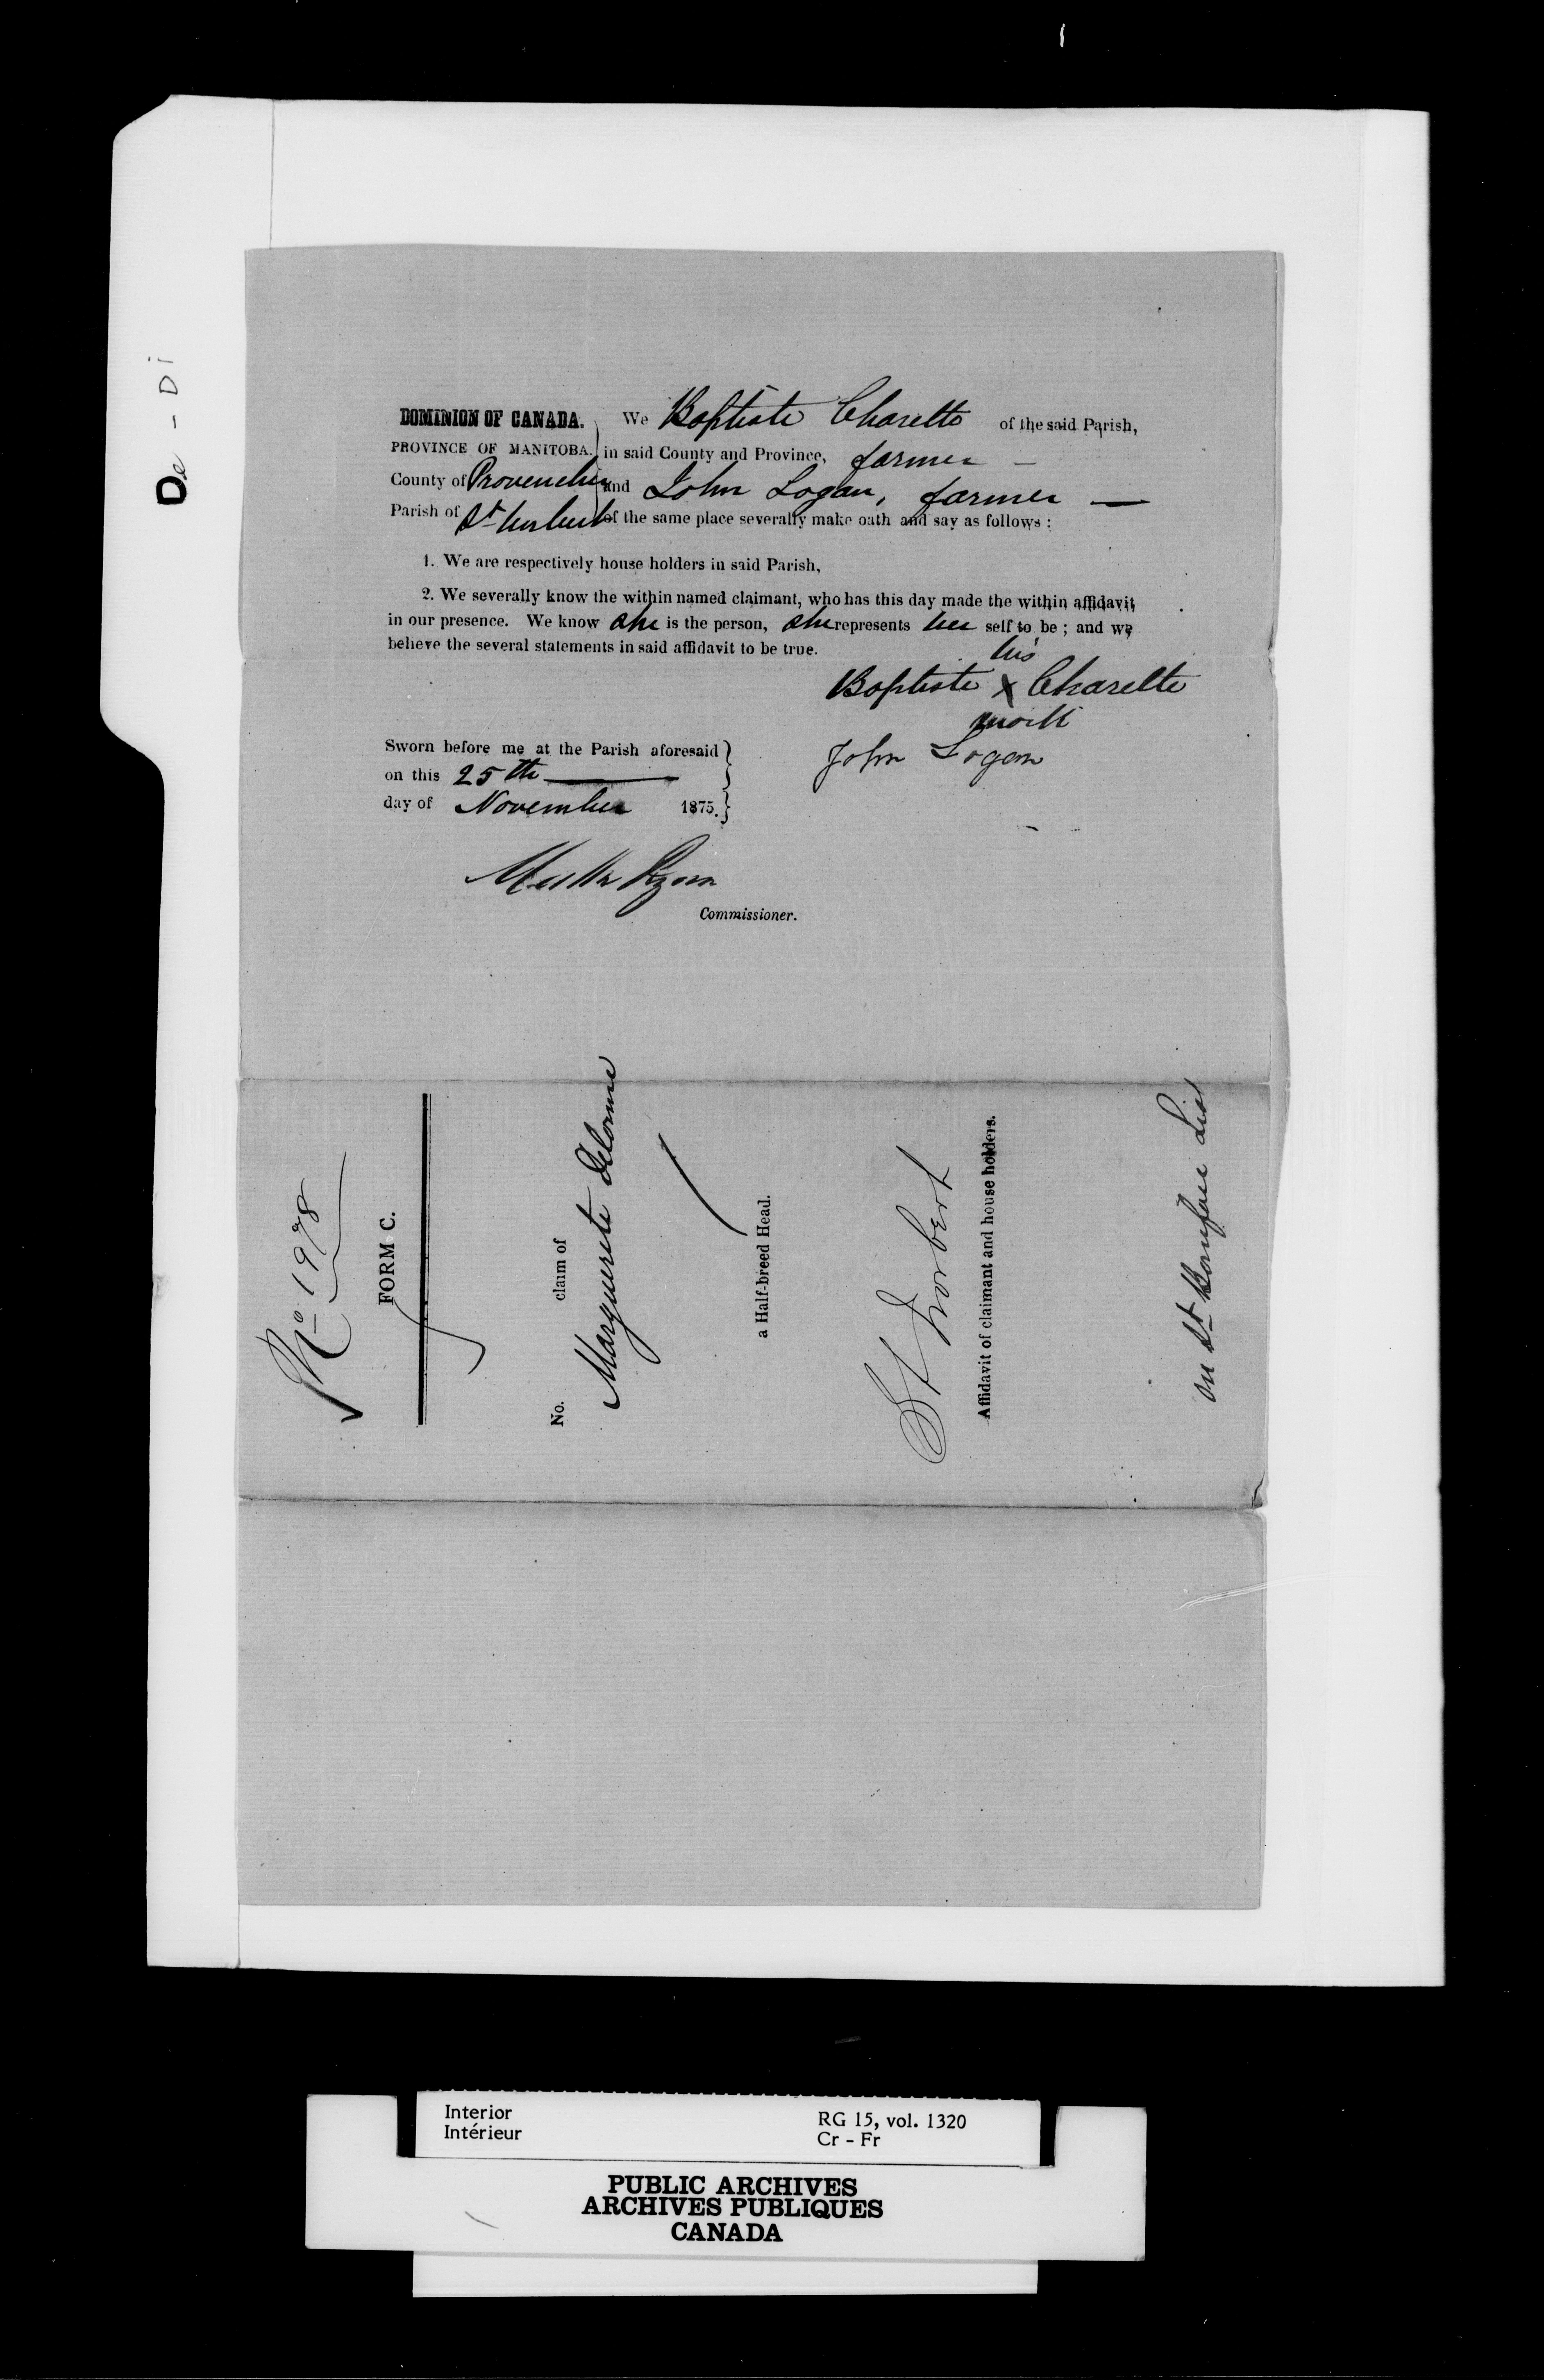 De - Di
DOMINION OF CANADA. We Baptiste Charette of the said Parish,
PROVINCE OF MANITOBA. in said County and Province, farmer —
County of Provencher and John Logan, farmer —
Parish of St Norbert of the same place severally make oath and say as follows :
1. We are respectively house holders in said Parish,
2. We severally know the within named claimant, who has this day made the within affidavit
in our presence. We know she is the person, she represents her self to be ; and we
believe the several statements in said affidavit to be true.
his
Baptiste x Charette
mark
John Logan
Sworn before me at the Parish aforesaid
on this 25th
day of November 1875.
Matth Ryan
Commissioner.
No 1978
FORM C.
No. claim of
Marguerite Delorme
a Half-breed Head.
St Norbert
Affidavit of claimant and house holders.
on St Boniface List
Interior RG 15, vol. 1320
Intérieur Cr - Fr
PUBLIC ARCHIVES
ARCHIVES PUBLIQUES
CANADA